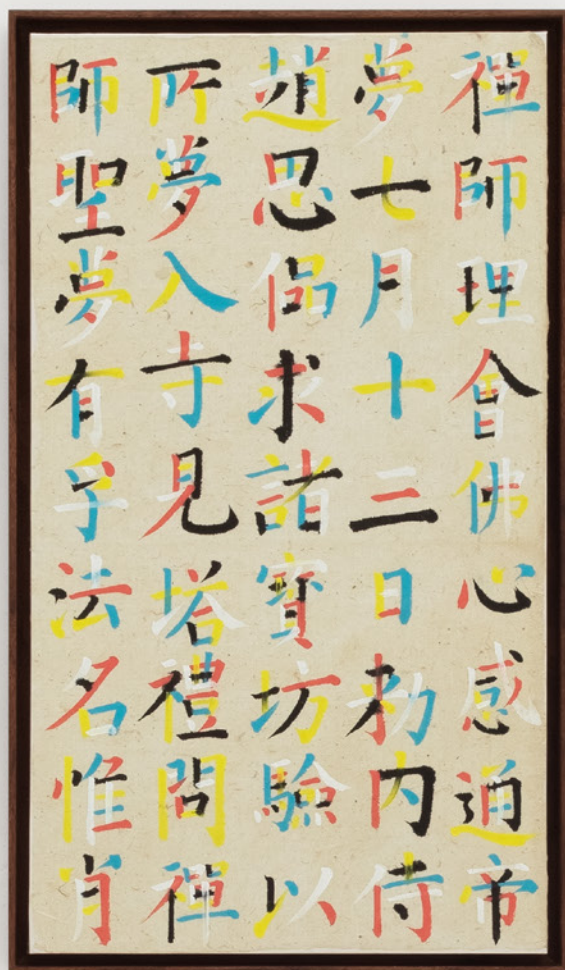 禪師理會佛心感通帝
夢七月十三日勅内侍
趙思偘求諸寶坊驗以
所夢入寺見塔禮問禪
師聖夢有孚法名惟肖